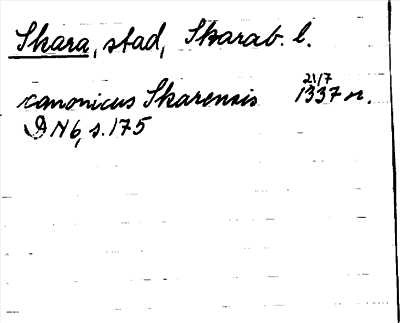 Skara, stad, Skarab. l.
canonicus Skarensis 21/7 1337 or.
DN 6, s. 175